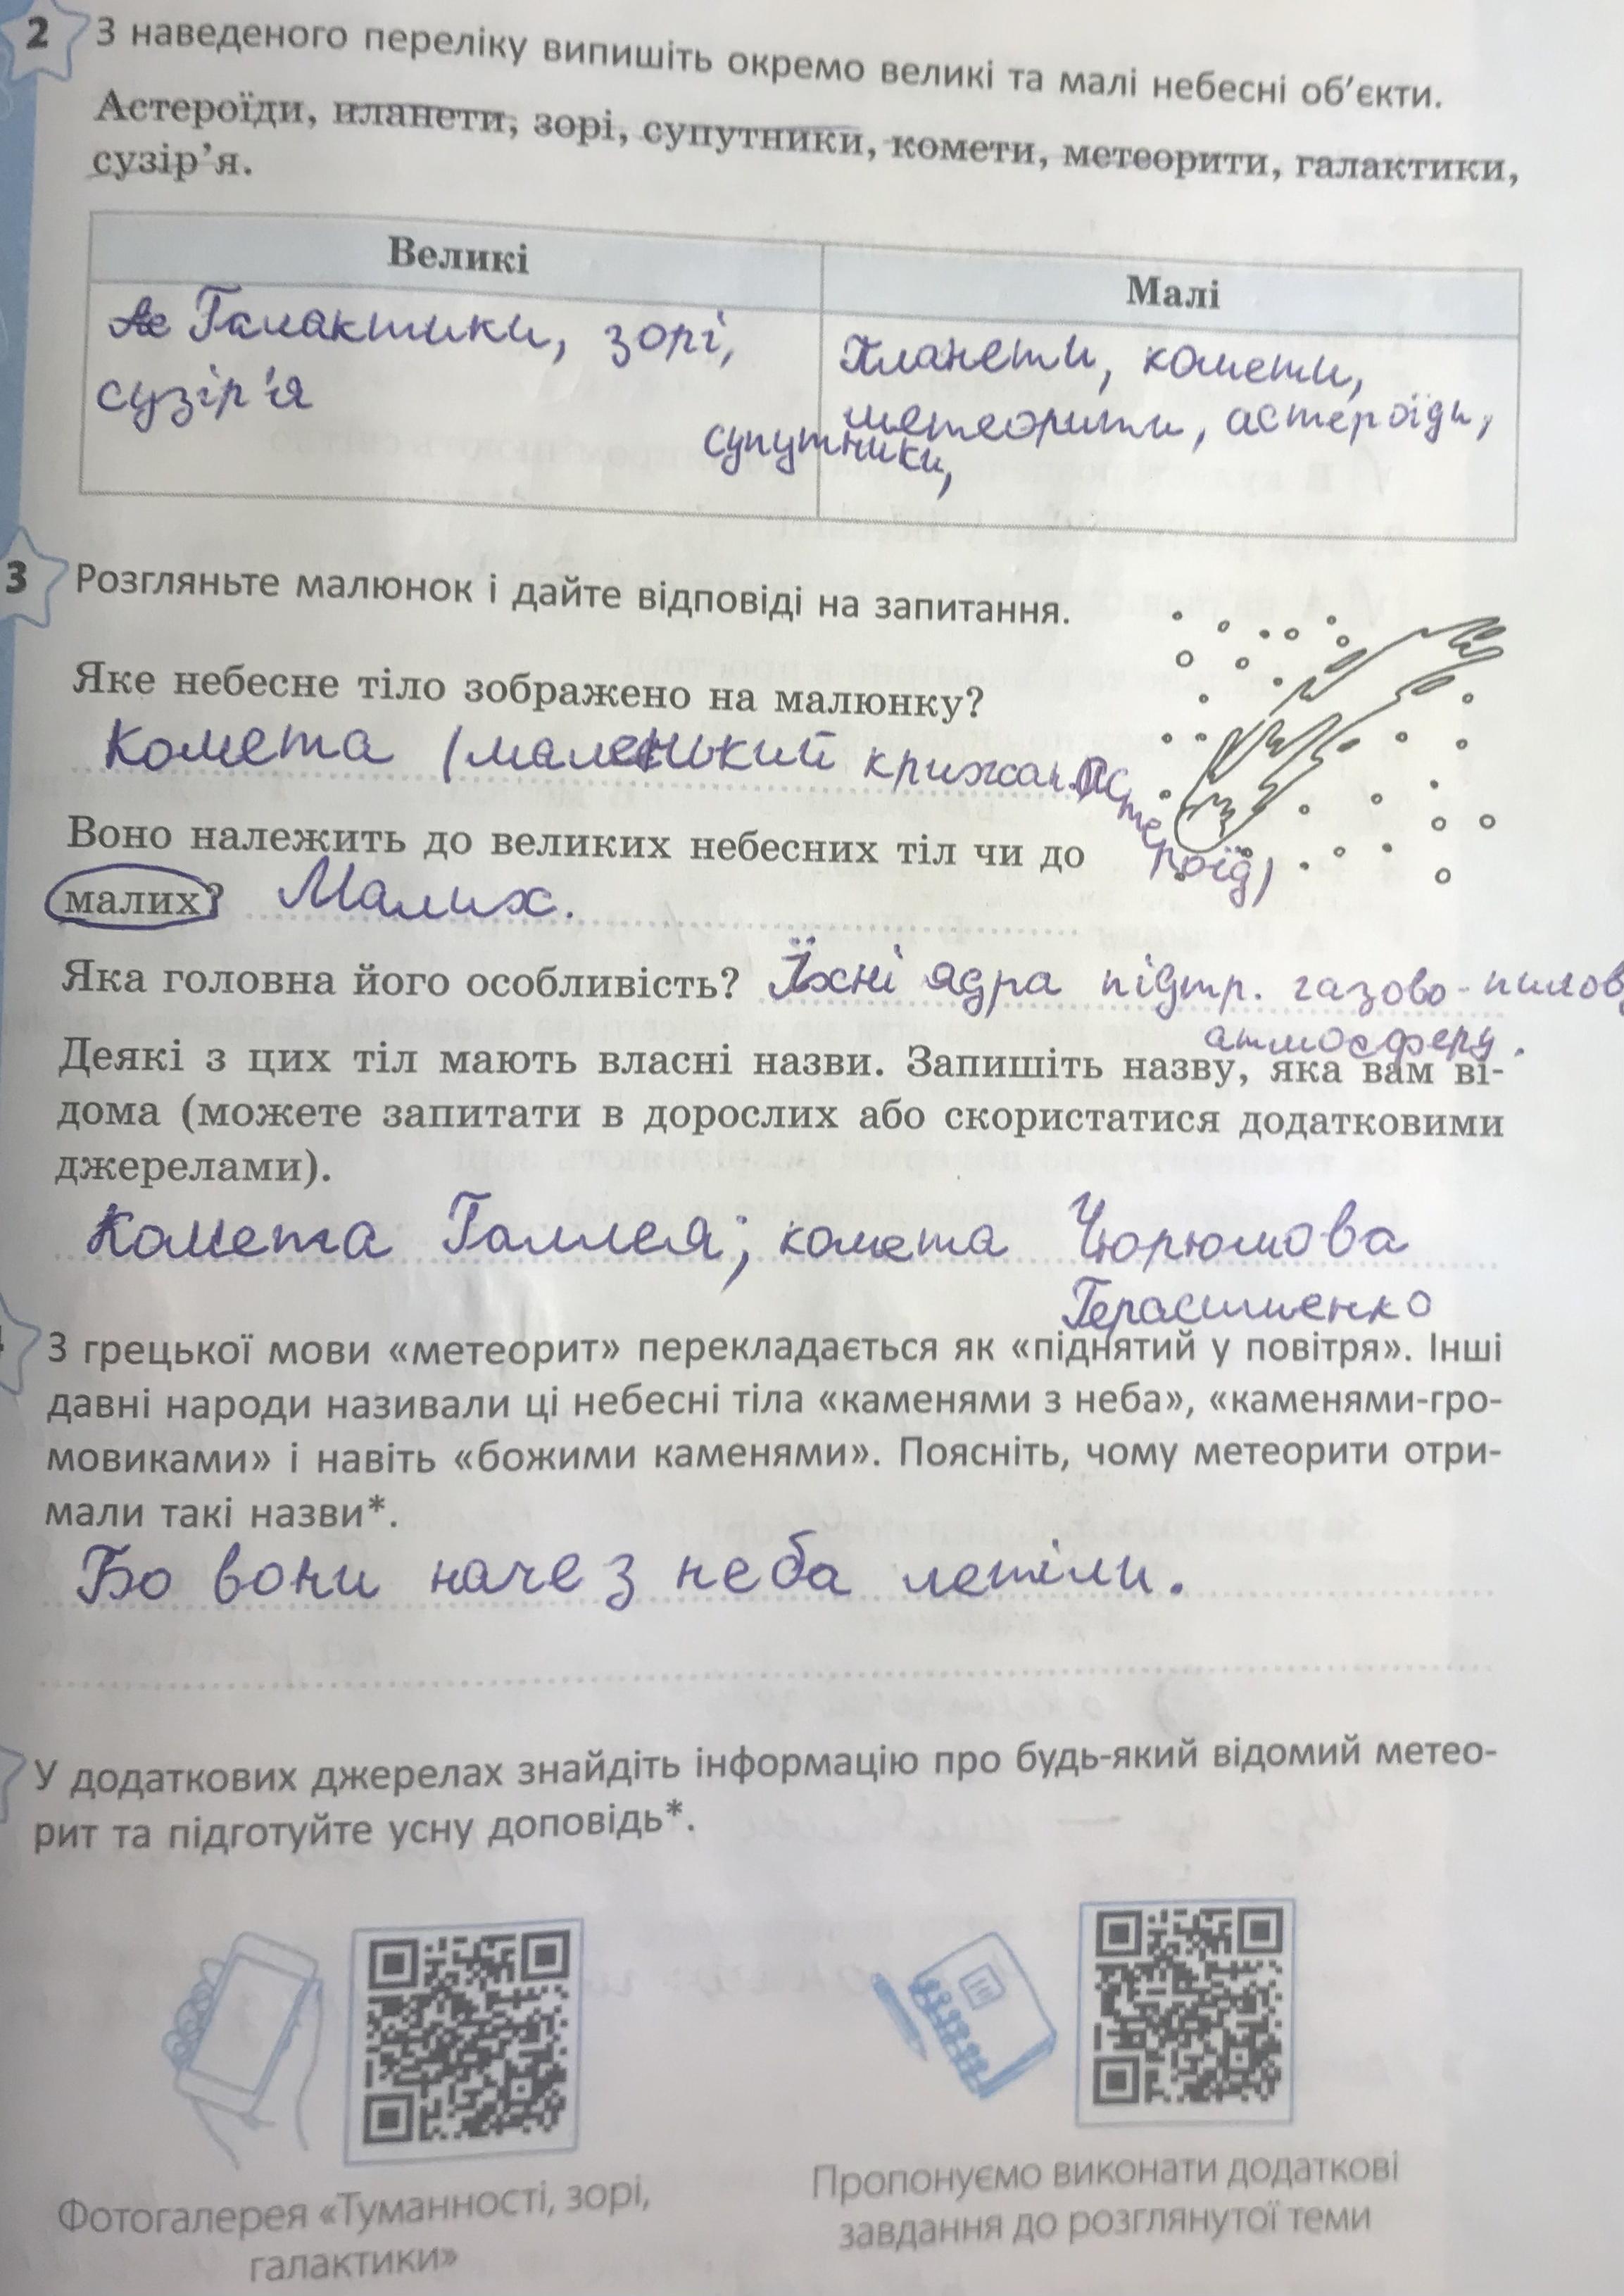 2 З наведеного переліку випишіть окремо великі та малі небесні об’єкти.
Астероїди, планети, зорі, супутники, комети, метеорити, галактики,
сузір’я.
Великі
Малі
Галактики, зорі,
сузір'я
Планети, комети,
метеорити, астероїди,
супутники,
3 Розгляньте малюнок і дайте відповіді на запитання.
Яке небесне тіло зображено на малюнку?
Комета (маленький крижан. астероїд)
Воно належить до великих небесних тіл чи до
малих? Малих.
Яка головна його особливість? Їхні ядра підтр. газово-пилову
атмосферу.
Деякі з цих тіл мають власні назви. Запишіть назву, яка вам ві-
дома (можете запитати в дорослих або скористатися додатковими
джерелами).
Комета Галлея; комета Чюрюмова
Герасименко
З грецької мови «метеорит» перекладається як «піднятий у повітря». Інші
давні народи називали ці небесні тіла «каменями з неба», «каменями-гро-
мовиками» і навіть «божими каменями». Поясніть, чому метеорити отри-
мали такі назви*.
Бо вони наче з неба летіли.
У додаткових джерелах знайдіть інформацію про будь-який відомий метео-
рит та підготуйте усну доповідь*.
Фотогалерея «Туманності, зорі,
галактики»
Пропонуємо виконати додаткові
завдання до розглянутої теми